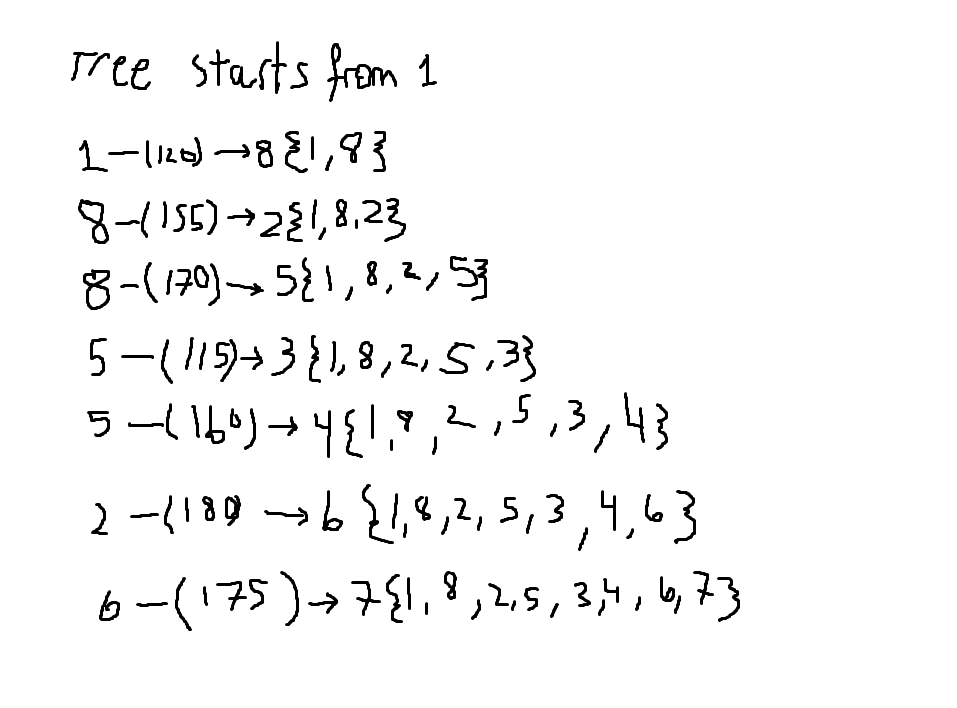 Tree starts from 1
1—(120)→8{1,8}
8—(155)→2{1,8,2}
8-(170)→5{1,8,2,5}
5—(115)→3{1,8,2,5,3}
5—(160)→4{1,8,2,5,3,4}
2—(180)→6{1,8,2,5,3,4,6}
6—(175)→7{1,8,2,5,3,4,6,7}